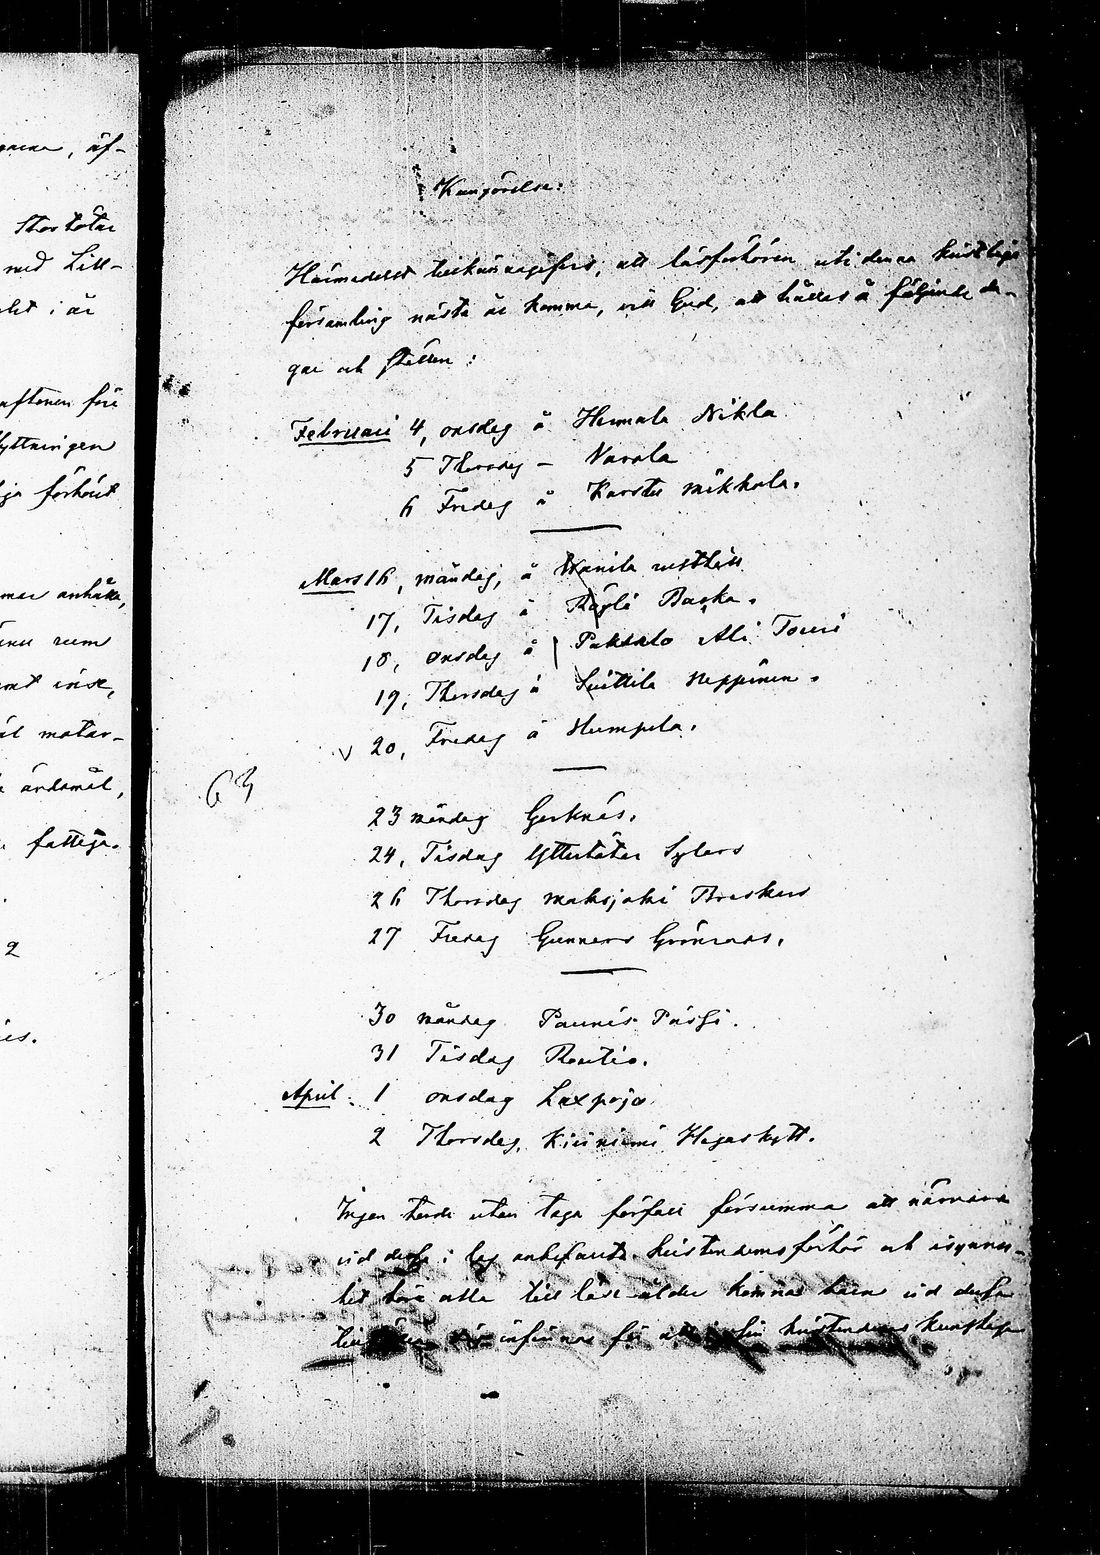 arna, äf-
Stortötar
med Lill-
i är
aftonen före
flyttningen
förhöret
anhålla,
rum
matar-
ändamål,
fattiga.
2
Kungörelse:
Härmedelst tillkännagifves, att läsförhören uti denna kristliga
församling nästa år komma, vill Gud, att hållas å följande da-
gar och ställen:
Februari 4, onsdag å Hermala Nikla
5 Thorsdag - Varola
6 Fredag å Karstu Mikkola.
Mars 16, måndag, å Wanila rusthåll
17, Tisdag å Röylä Backa.
18, onsdag å Paksalo Ali Touri
19, Thorsdag å Suittila Heppinen.
v 20, Fredag å Humpila.
63
23 måndag Gerknäs.
24, Tisdag Yttertötar Sylars
26 Thorsdag Maksjoki Broskus
27 Fredag Gunnars Grönroos.
30 måndag Paunis Passi.
31 Tisdag Routio.
April. 1 onsdag Laxpojo
2 Thorsdag, Kiviniemi Hagaskytt.
Ingen torde utan laga förfall försumma att närvara
vid dessa i lag anbefallte kristendomsförhör och isynner-
het böra alla till läse-ålder komna barn vid dessa
infinnas för att kristendoms kunskap